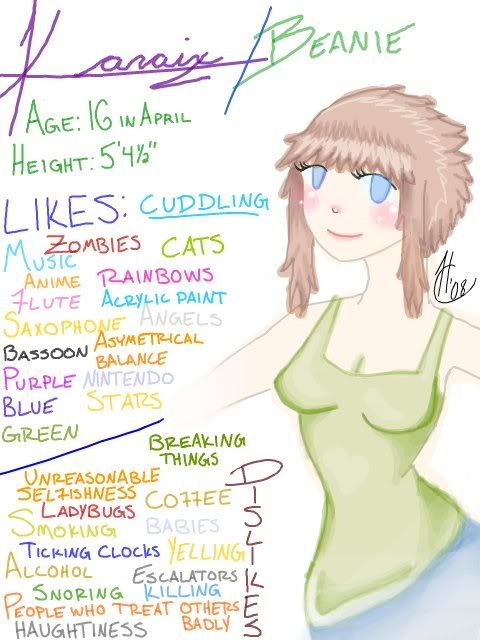 Karaix / BEANIE
AGE: 16 IN APRIL
HEIGHT: 5'4½"
LIKES: CUDDLING
MUSIC ZOMBIES CATS
ANIME RAINBOWS
FLUTE ACRYLIC PAINT
SAXOPHONE ANGELS
BASSOON ASYMETRICAL
BALANCE
PURPLE NINTENDO
BLUE STARS
GREEN
BREAKING
THINGS
DISLIKES
UNREASONABLE
SELFISHNESS COFFEE
LADYBUGS
SMOKING BABIES
TICKING CLOCKS YELLING
ALCOHOL ESCALATORS
SNORING KILLING
PEOPLE WHO TREAT OTHERS
BADLY
HAUGHTINESS
'08